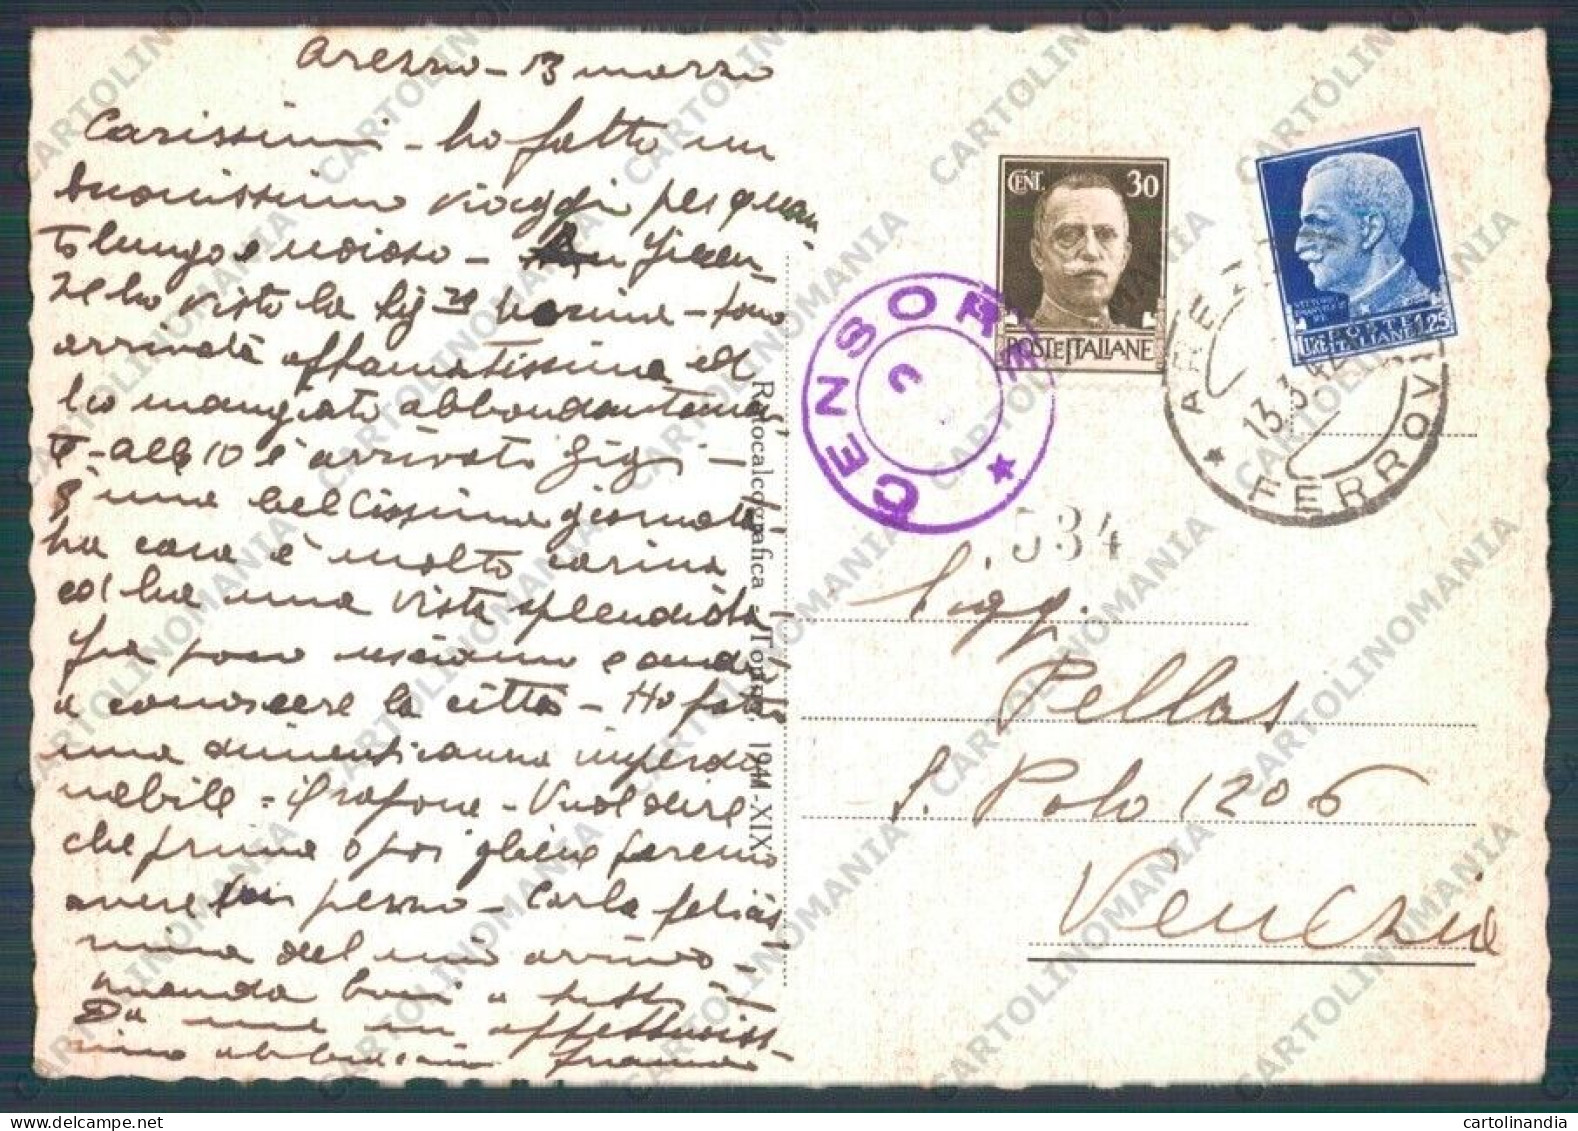 Arezzo - 13 marzo
Carissimi - ho fatto un
buonissimo viaggio per quan-
to lungo e noioso - Firen-
ze ho visto la Sig.ra - sono
arrivata affamatissima ed
ho mangiato abbondantemen-
te - alle 10 è arrivato Gigi -
È una bellissima giornata
la casa è molto carina
ed ha una vista splendida -
fra poco usciamo e andr.
a conoscere la città - Ho fatto
una dimenticanza imperdo
nabile - il sapone - Vuol dire
che prima o poi gliene faremo
avere un pezzo - Carla felicis
sima del mio arrivo -
manda baci a tutti -
Da me un affettuosis-
simo abbraccio
Rotocalcografica Torino 1941-XIX
CENSORE
CENT. 30
POSTE ITALIANE
LIRE 1,25
POSTE ITALIANE
AREZZO FERROVIA
13.3.42
534
Sigg.
Pellas
S. Polo 1206
Venezia
CARTOLINOMANIA
cartolinandia